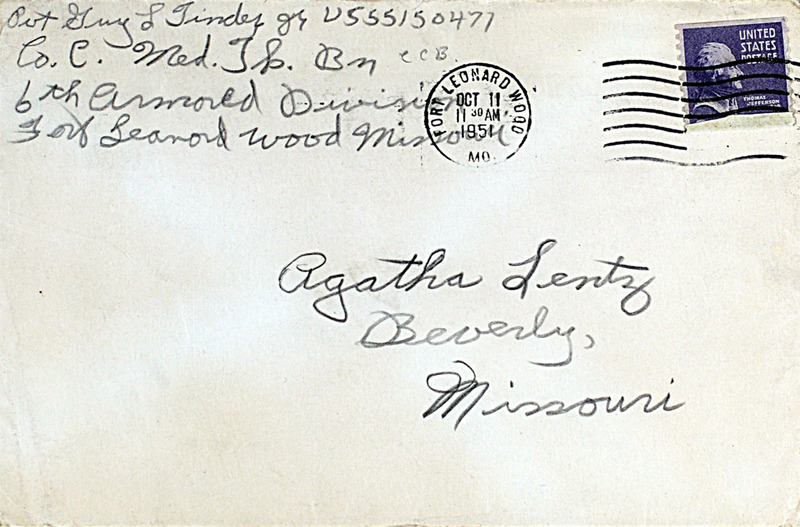 Pvt Guy L Tinder Jr US55150477
Co. C. Med. Tk. Bn CCB
6th Armored Division
Fort Leanord Wood Missouri
FORT LEONARD WOOD
OCT 11
11 30 AM
1951
MO.
UNITED
STATES
POSTAGE
THOMAS
JEFFERSON
Agatha Lentz
Beverly,
Missouri